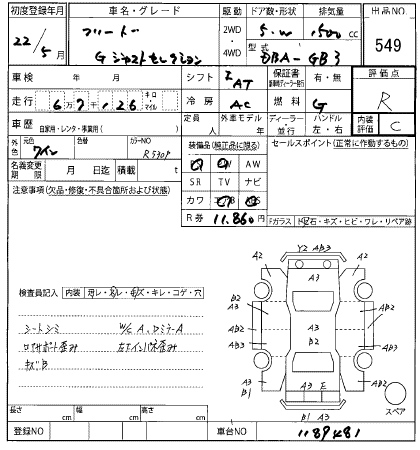 初度登録年月 車名・グレード 駆動 ドア数・形状 排気量 出品NO
22/5月 フリード 2WD・4WD 5.W 1500cc 549
G ジャストセレクション 型式 DBA-GB3
車検 年 月 シフト IAT 保証書 有・無 評価点
走行 6万7千126 キロ・マイル 冷房 AC 燃料 G R
車歴 自家用・レンタ・事業用( ) 定員 人 外車モデル 年 ディーラー・並行 ハンドル 左・右 内装評価 C
外色 元色 ワイン 色替 カラーNO R530P 装備品(純正品に限る) セールスポイント(正常に作動するもの)
名義変更期限 月 日迄 積載 t AW
SR TV ナビ
注意事項(欠品・修復・不具合箇所および状態) カワ
R券 11.860円
Fガラス トビ石・キズ・ヒビ・ワレ・リペア跡
Y2 AB3
A2 A3 A2
B2 A3 AB2
A3 A3 AB3
AB2 B2
AB3
A2 AB2
A3 A3 E
B1 B1 A3
スペア
検査員記入 内装 ヨレ・スレ・キズ・キレ・コゲ・穴
シートシミ W/C A、Dミラ-A
ロアサポート歪み 左Tインパネ歪み
キズB
長さ cm 幅 cm 高さ cm
登録NO 車台NO 1189481